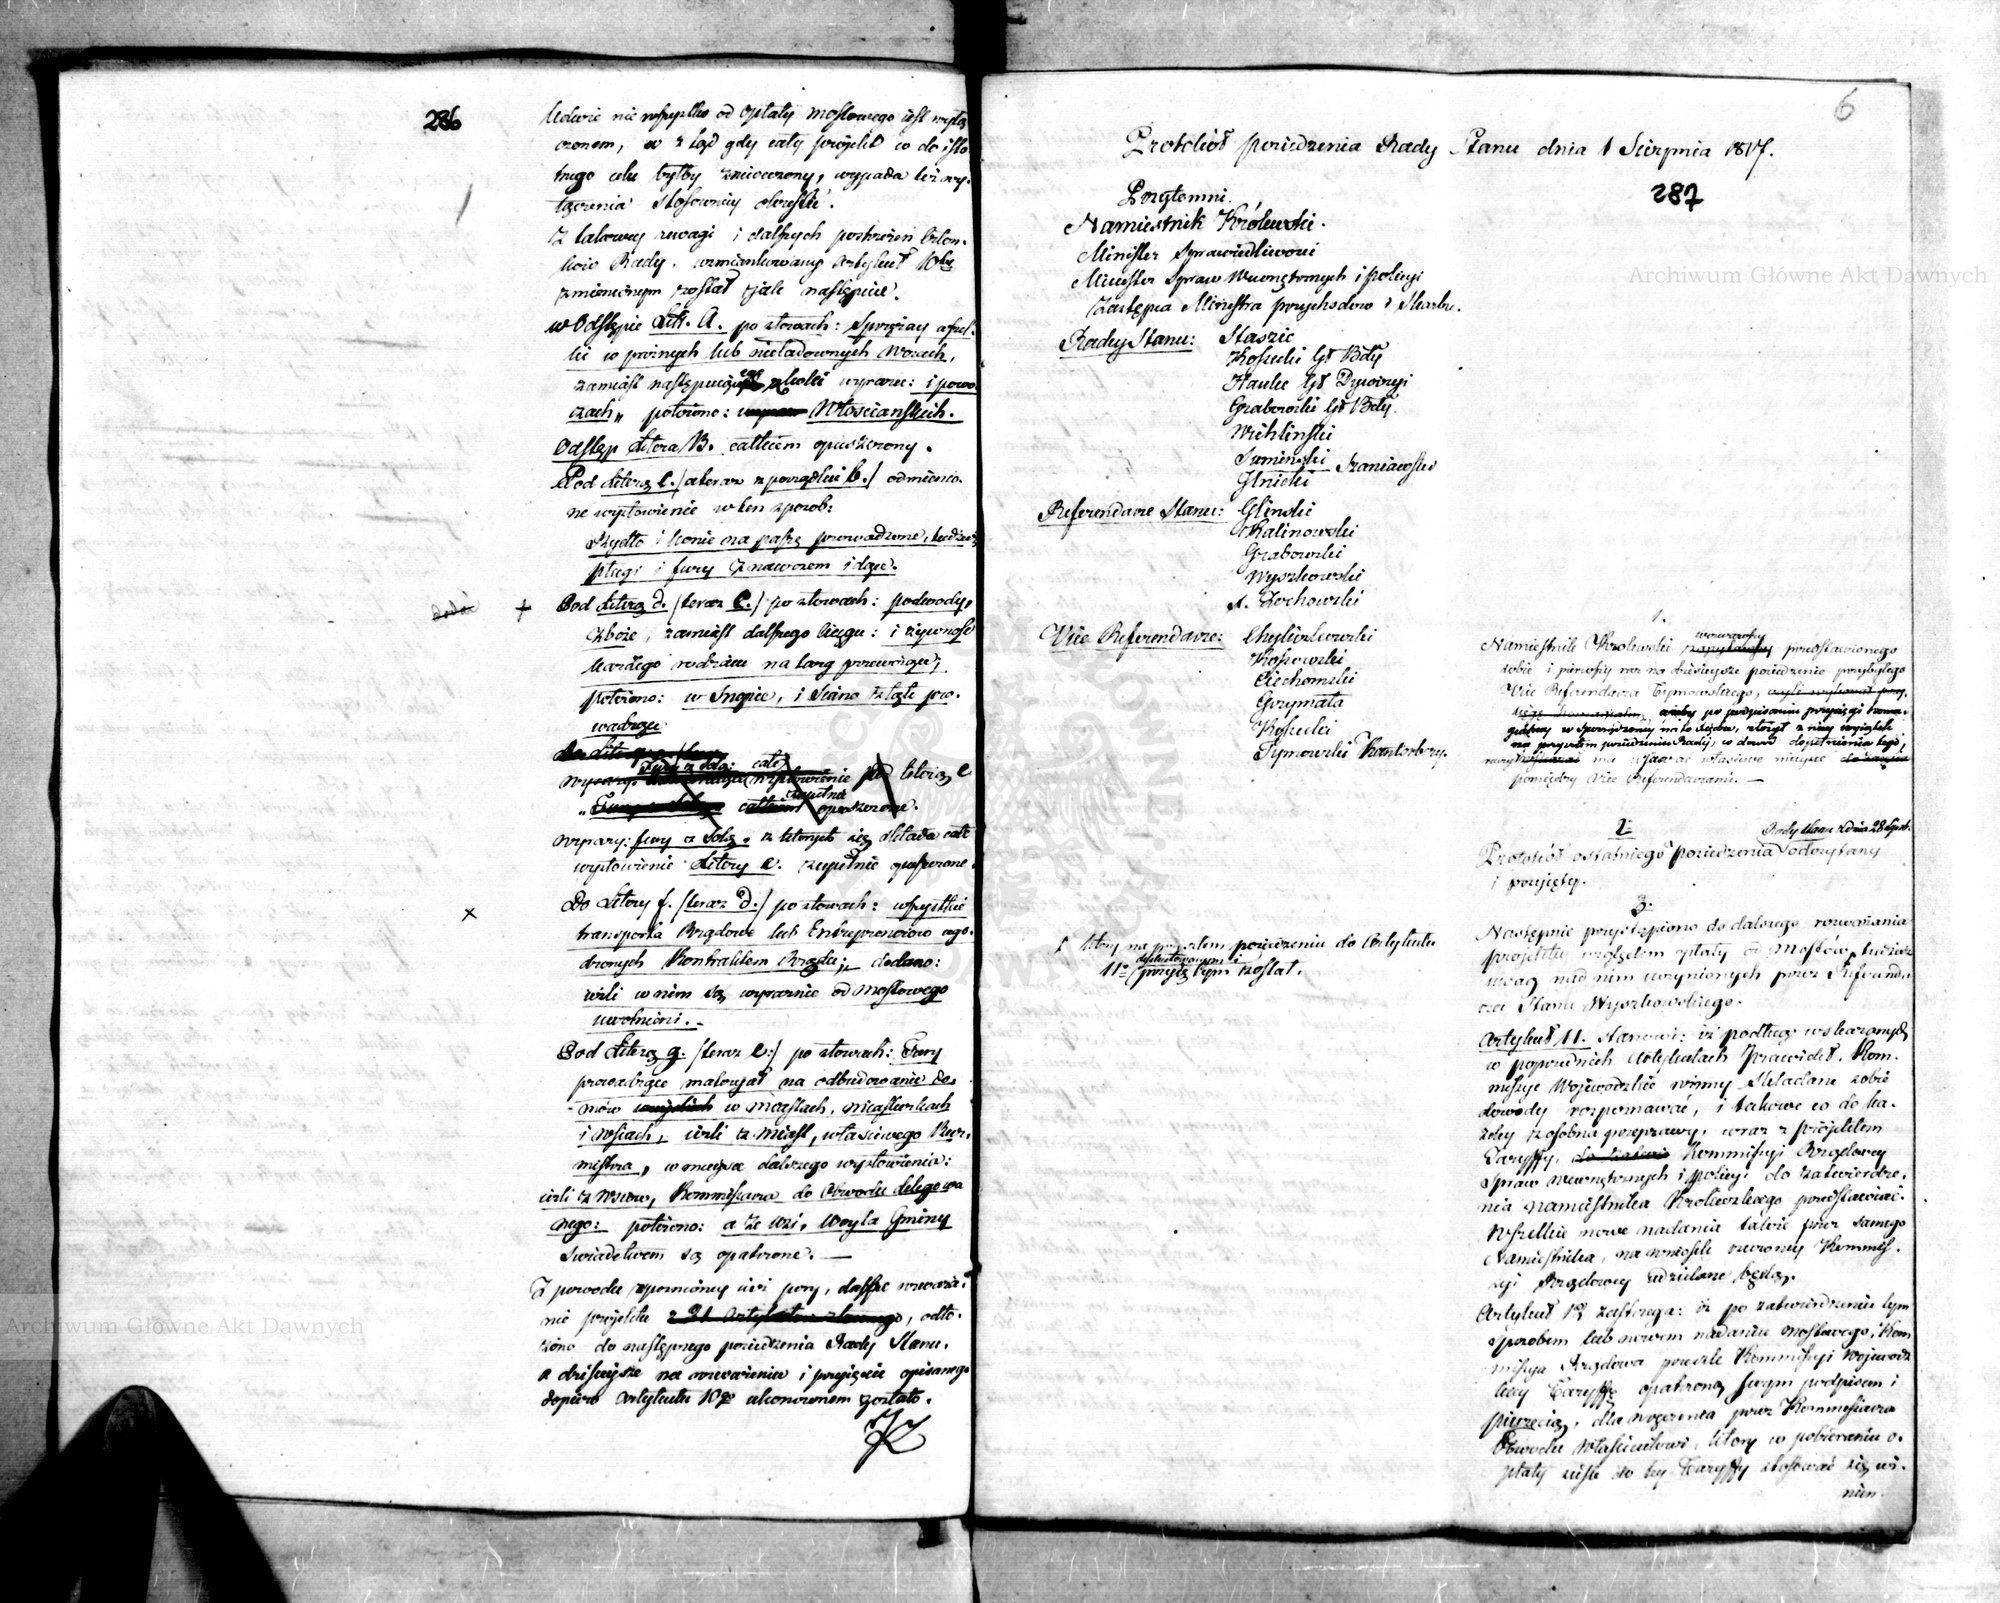 286
kowie nie wszystko od Opłaty mostowego jest wyłą
czonem, w tąż gdy cały projekt co do isto
tnego celu byłby zniweczony, wypada też wy-
łączenia stosowniey określić.
Z takowey uwagi i dalszych postrzeżeń Człon-
ków Rady, wzmiankowany Artykuł 10ty
zmienionym został jak następuie.
w Odstępie Litt. A. po słowach: Sprzężay
w próżnych lub nieładownych Wozach,
zamiast następuiącego z kolei wyrazu: i powo
zach„ położono: Włosciańskich.
Odstęp Litera B. całkiem opuszczony.
Pod Literą C. /a teraz z porządku b./ odmienio-
ne wysłowienie w ten sposób:
Bydło i konie na paszę prowadzone, tudzież
pługi i fury z nawozem idące.
+ Pod Literą d. /teraz C./ po słowach: podwody,
zboże, zamiast dalszego ciągu: i żywność
każdego rodzaiu na targ przewożące;
położono: w Snopie, i Siano z łąk pro-
wadzące.
Wyrazy: fury z Solą, z których się składa całe
wysłowienie Litery e. zupełnie opuszczone.
x Do Litery f. /teraz d./ po słowach: wszystkie
transporta Rządowe lub Entreprenerów ugo-
dzonych Kontraktem Rządu; dodano:
ieżli w nim są wyraznie od mostowego
uwolnieni.-
Pod Literą g. /teraz e:/ po słowach: Fury
prowadzące materyał na odbudowanie do-
mów w miastach, miasteczkach
i wsiach, ieżli z Miast, właściwego Bur-
mistrza, w mieysce dalszego wysłowienia:
ieżli z Wsiów, Kommissarza do Obwodu delegowa
nego: położono: a ze wsi, Woyta Gminy
świadectwem są opatrzone. —
Z powodu spóźnioney iuż pory, dalsze rozważa-
nie projektu, odło-
żono do następnego posiedzenia Rady Stanu.
a dzisieysze na rozważeniu i przyięciu opisanego
dopiero Artykułu 10go ukończonem zostało.
6
Protokół posiedzenia Rady Stanu dnia 1 Sierpnia 1817.
287
Przytomni.
Namiestnik Królewski.
Minister Sprawiedliwości
Minister Spraw Wewnętrznych i policyi
Zastępca Ministra przychodów i Skarbu.
Radcy Stanu: Staszic
Kossecki Gł Bdy
Hauke Gł Dywizyi
Grabowski Gł Bdy.
Wichliński
Szaniawski
Gliniecki
Referendarze Stanu: Gliński
Kalinowski
Grabowski
Wyszkowski
A. Żochowski
Vice Referendarze:
Kossowski
Ciechomski
Grzymała
Kossecki
Tymowski Kantorbery.
1.
wezwawszy
Namiestnik Królewski przedstawionego
sobie i pierwszy raz na dzisieysze posiedzenie przybyłego
Vice Referendarza Tymowskiego,
pomiędzy Vice Referendarzami. —
2.
Rady Stanu z dnia 28 Lipca.
Protokół ostatniego posiedzenia odczytany
i przyięty.
3.
Następnie przystąpiono do dalszego rozważania
projektu względem opłaty od Mostów, tudzież
uwag nad nim uczynionych przez Referenda
rza Stanu Wyszkowskiego.
Artykuł 11. stanowi: iż podług wskazanych
w poprzednich Artykułach Prawideł, Kom-
missye Wojewódzkie winny składane sobie
dowody rozpoznawać, i takowe co do ka-
żdey z osobna przeprawy, wraz z projektem
Taryffy, Kommissyi Rządowey
Spraw Wewnętrznych i policyi do zatwierdze-
nia Namiestnika Królewskiego przedstawiać.
Wszelkie nowe nadania także przez samego
Namiestnika, na wniosek rzeczoney Kommis-
syi Rządowey udzielane będą.
Artykuł 12 zastrzega: iż po zatwierdzeniu tym
Sposobem lub nowem nadaniu mostowego, Kom
missya Rządowa prześle Kommissyi Wojewódz
kiey Taryffę opatrzoną swym podpisem i
pieczęcią, dla wręczenia przez Kommissarza
Obwodu Właścicielowi, który w pobieraniu o-
płaty ściśle do tey Taryffy stosować się wi-
nien.
± który na przyszłem posiedzeniu do Artykułu
dyskutowanym i
11o przyiętym został.
Archiwum Główne Akt Dawnych
Archiwum Główne Akt Dawnych